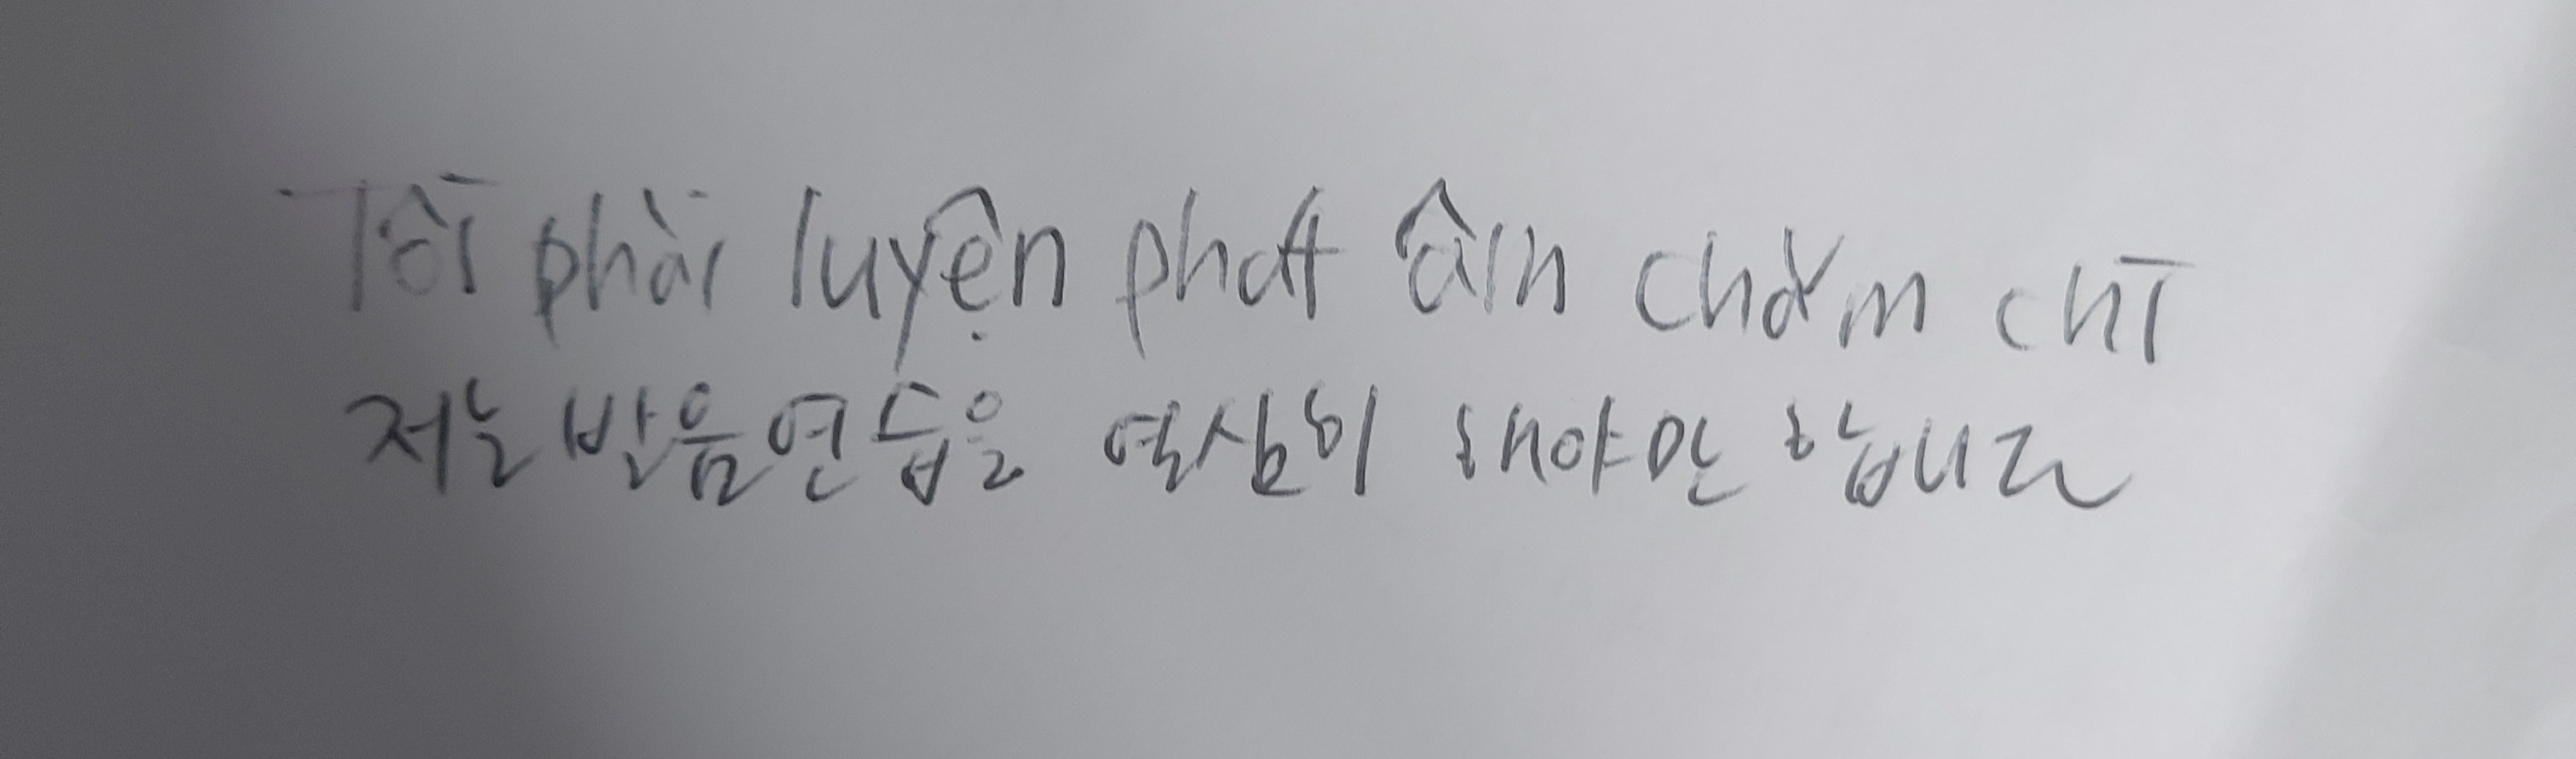 Tôi phải luyện phát âm chăm chỉ
저는 발음연습을 열심히 해야만 합니다